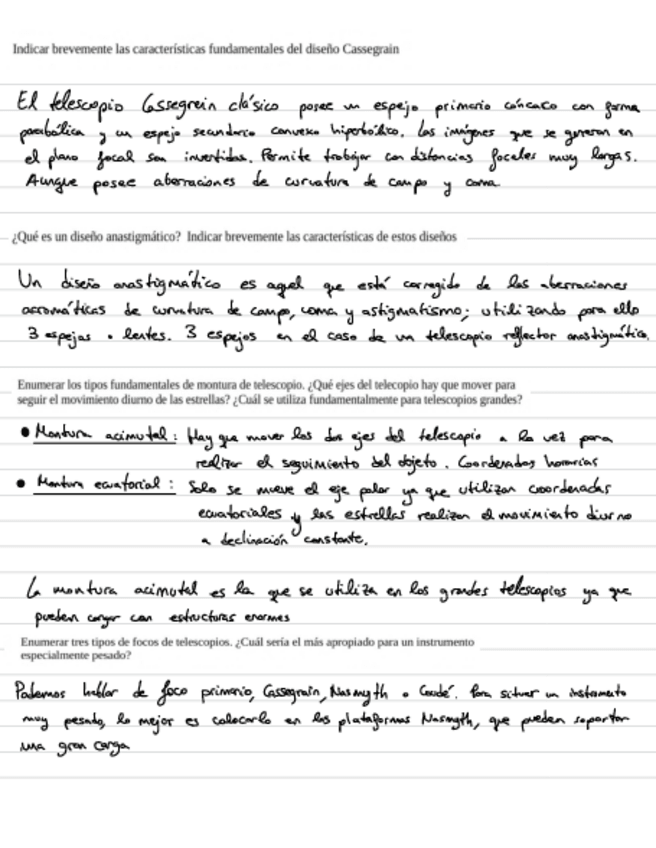 Indicar brevemente las características fundamentales del diseño Cassegrain
El telescopio Cassegrein clásico posee un espejo primario cóncavo con forma
parabólica y un espejo secundario convexo hiperbólico. Las imágenes que se generan en
el plano focal son invertidas. Permite trabajar con distancias focales muy largas.
Aunque posee aberraciones de curvatura de campo y coma
¿Qué es un diseño anastigmático? Indicar brevemente las características de estos diseños
Un diseño anastigmático es aquel que está corregido de las aberraciones
acromáticas de curvatura de campo, coma y astigmatismo; utilizando para ello
3 espejos o lentes. 3 espejos en el caso de un telescopio reflector anastigmático.
Enumerar los tipos fundamentales de montura de telescopio. ¿Qué ejes del telecopio hay que mover para
seguir el movimiento diurno de las estrellas? ¿Cuál se utiliza fundamentalmente para telescopios grandes?
• Montura acimutal: Hay que mover los dos ejes del telescopio a la vez para
realizar el seguimiento del objeto. Coordenadas horarias
• Montura ecuatorial: Solo se mueve el eje polar ya que utilizan coordenadas
ecuatoriales y las estrellas realizan el movimiento diurno
a declinación constante.
La montura acimutal es la que se utiliza en los grandes telescopios ya que
pueden cargar con estructuras enormes
Enumerar tres tipos de focos de telescopios. ¿Cuál sería el más apropiado para un instrumento
especialmente pesado?
Podemos hablar de foco primario, Cassegrain, Nasmyth o Coudé. Para situar un instrumento
muy pesado, lo mejor es colocarlo en las plataformas Nasmyth, que pueden soportar
una gran carga